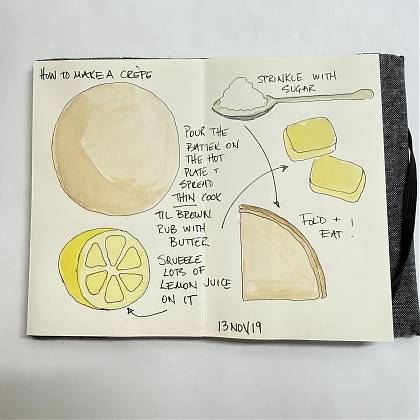 HOW TO MAKE A CRÊPE
POUR THE
BATTER ON
THE HOT
PLATE +
SPREAD
THIN COOK
TIL BROWN
RUB WITH
BUTTER
SQUEEZE
LOTS OF
LEMON JUICE
ON IT
SPRINKLE WITH
SUGAR
FOLD +
EAT !
13 NOV 19